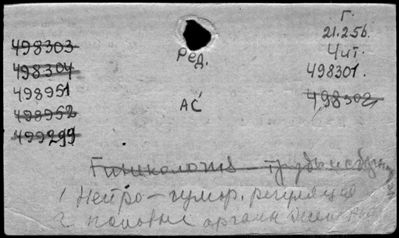 Г.
21.256.
498303
Ред.
Чит.
498304
498301.
498951
АС
498302
498952
499299
Гинекология - труды и сборн
1 Нейро-гумор. регуляция
2 половые органы женские